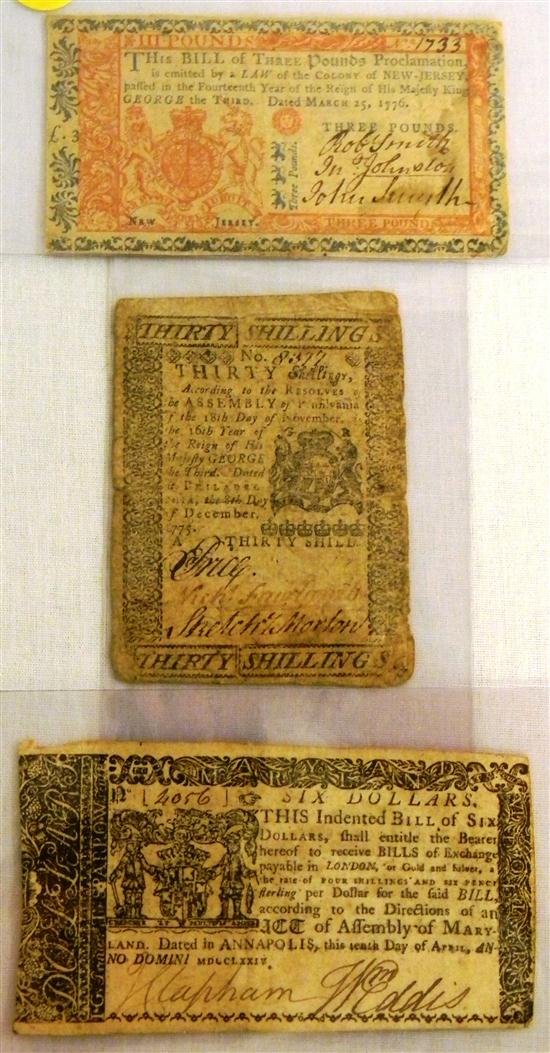 III POUNDS 1733
THIS BILL of THREE Pounds Proclamation,
is emitted by a LAW of the COLONY of NEW-JERSEY,
passed in the Fourteenth Year of the Reign of His Majesty King
GEORGE the THIRD. Dated MARCH 25, 1776.
£. 3
THREE POUNDS.
Rob Smith
Jno Johnston
John Smyth
Three Pounds.
NEW JERSEY.
THREE POUND
THIRTY SHILLINGS
No. 8577
THIRTY Shillings,
According to the RESOLVES
the ASSEMBLY of Pennsylvania
f the 18th Day of November
he 16th Year of
the Reign of His
Majesty GEORGE
he Third. Dated
the 8th Day
f December.
775.
G R
A THIRTY SHILL
Sketchy Morton
THIRTY SHILLINGS
MARYLAND
No [4056] SIX DOLLARS.
THIS Indented BILL of SIX
DOLLARS, shall entitle the Bearer
hereof to receive BILLS of Exchange
payable in LONDON, or Gold and Silver, a
the rate of FOUR SHILLINGS AND SIX PENCE
sterling per Dollar for the said BILL,
according to the Directions of an
ACT of Assembly of MARY-
LAND. Dated in ANNAPOLIS, this tenth Day of APRIL, AN-
NO DOMINI MDCCLXXIV.
J Clapham Wm Eddis